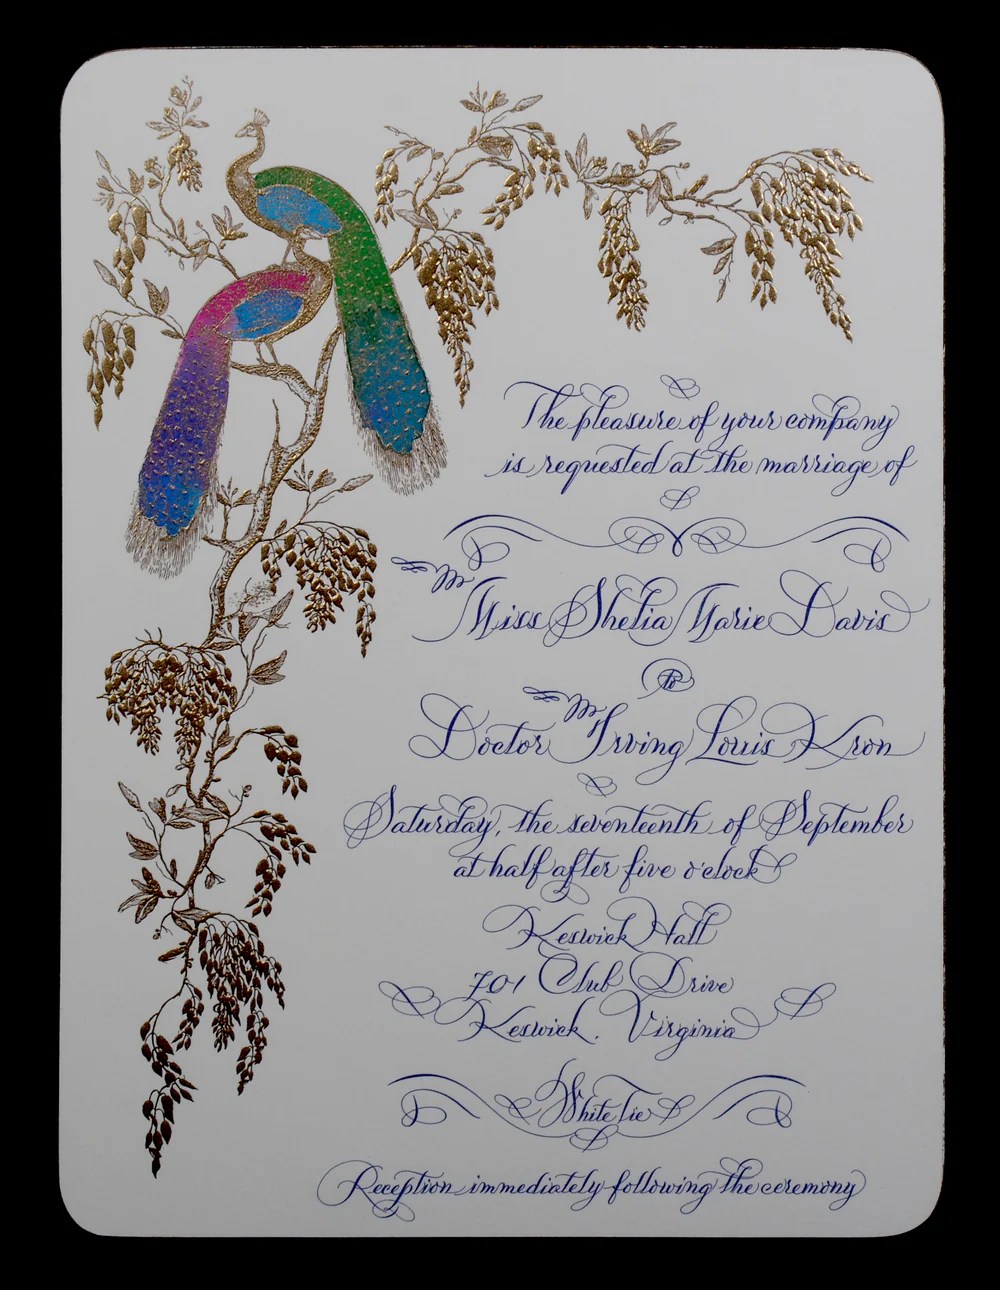 The pleasure of your company
is requested at the marriage of
Miss Shelia Marie Davis
to
Doctor Irving Louis Kron
Saturday, the seventeenth of September
at half after five o'clock
Keswick Hall
701 Club Drive
Keswick, Virginia
White Tie
Reception immediately following the ceremony